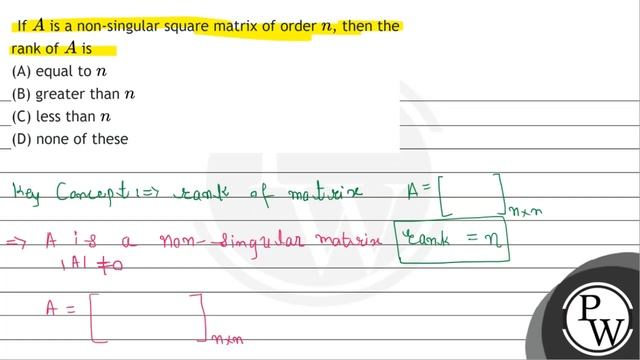 If A is a non-singular square matrix of order n, then the
rank of A is
(A) equal to n
(B) greater than n
(C) less than n
(D) none of these
Key Concept :=> rank of matrix A = [ ]n×n
=> A is a non-singular matrix rank = n
|A| ≠ 0
A = [ ]n×n
P
W